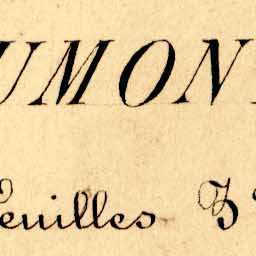 UMON
euilles 3